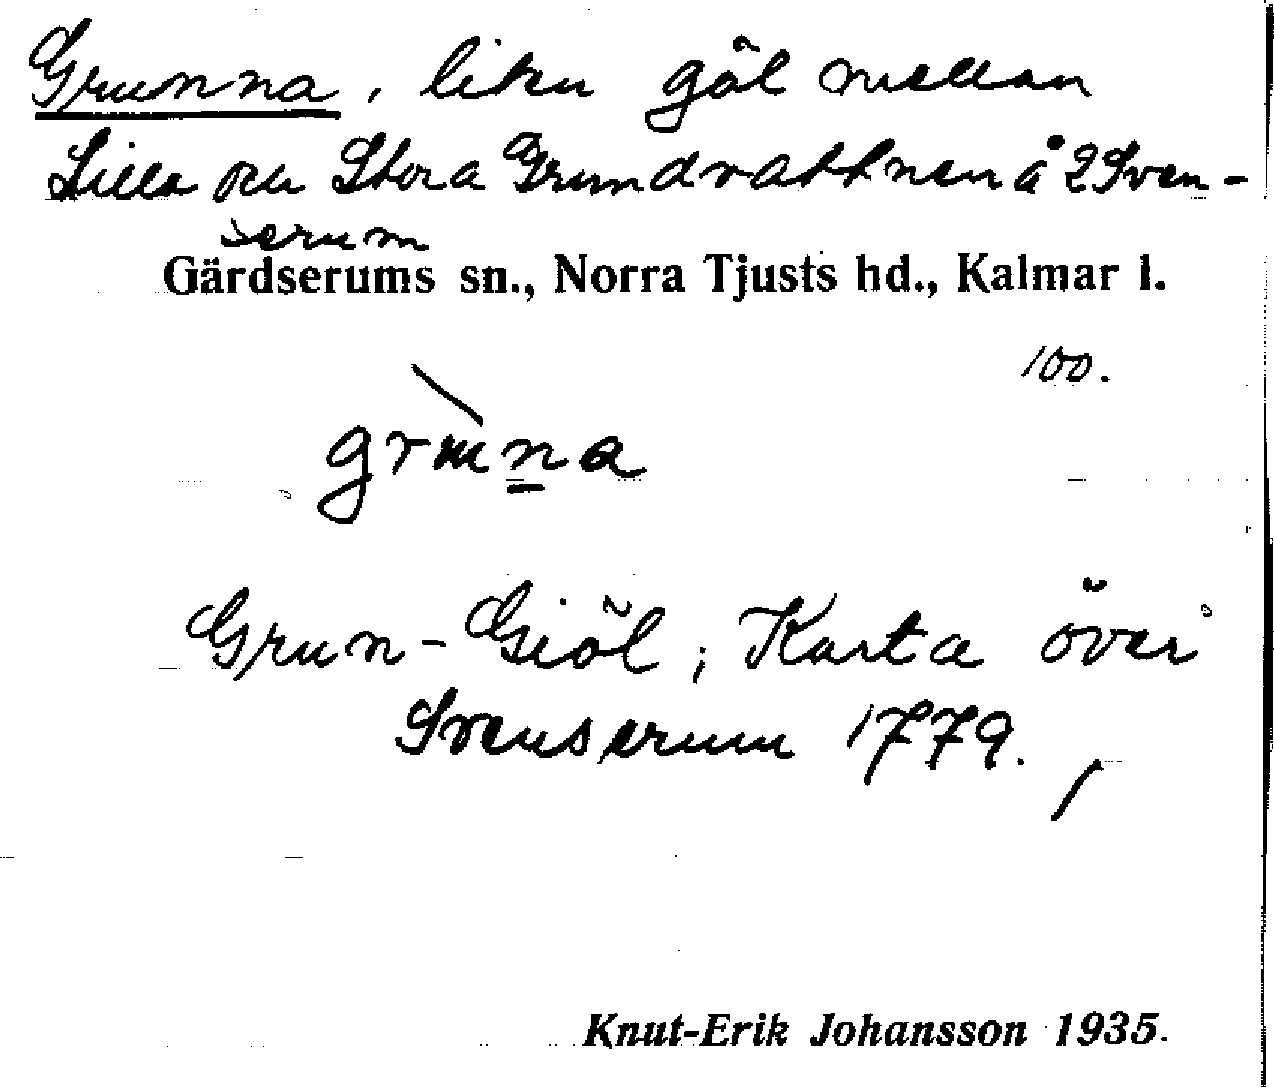 Grunna, liten göl mellan
Lilla och Stora Grundvattnen å 2 Sven-
serum
Gärdserums sn., Norra Tjusts hd., Kalmar l.
100.
grùna
Grun-Giöl; Karta över
Svenserum 1779.
Knut-Erik Johansson 1935.